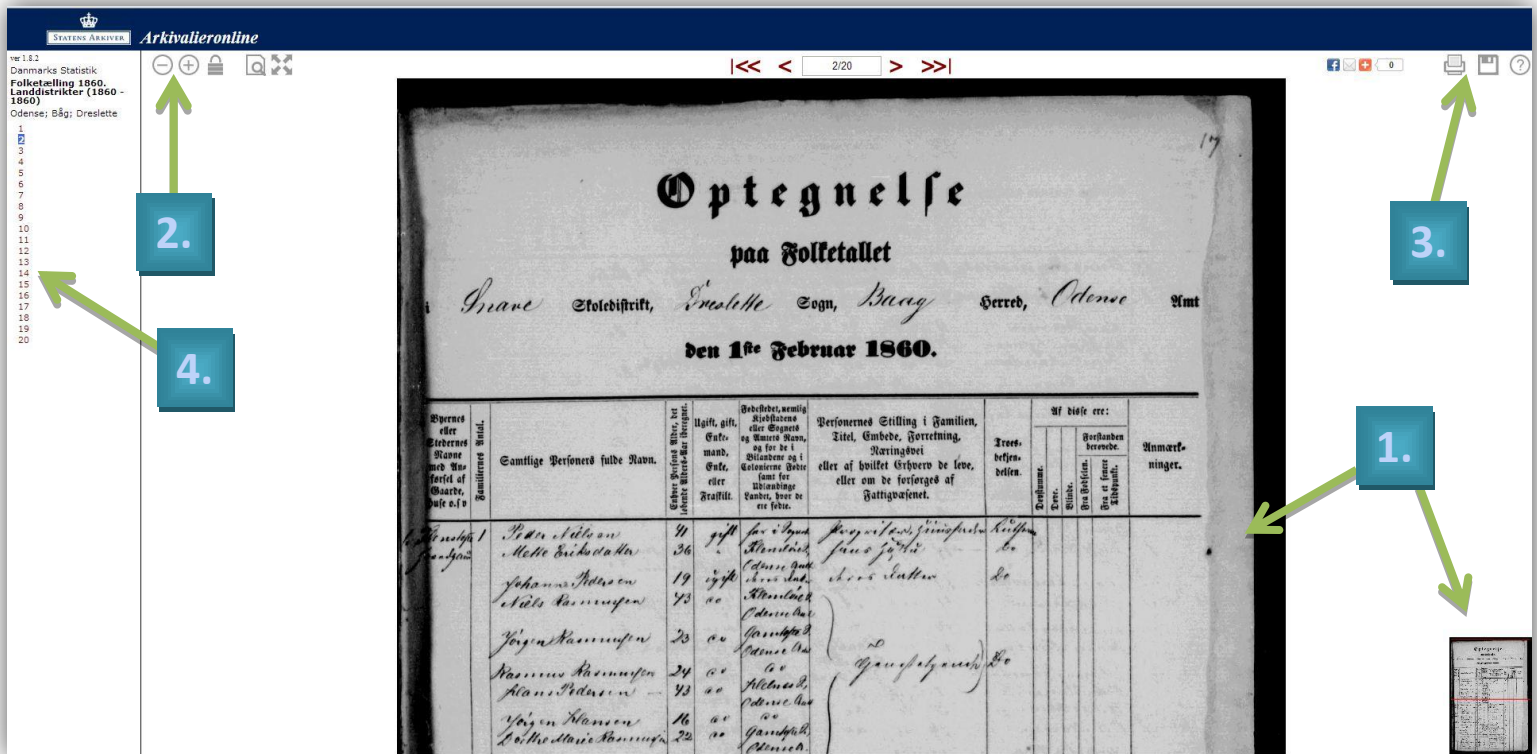 STATENS ARKIVER Arkivalieronline
ver 1.8.2
Danmarks Statistik
Folketælling 1860.
Landdistrikter (1860 -
1860)
Odense; Båg; Dreslette
1
2
3
4
5
6
7
8
9
10
11
12
13
14
15
16
17
18
19
20
|<< < 2/20 > >>|
0
?
2.
3.
4.
1.
Optegnelse
paa Folketallet
i Snave Skoledistrikt, Dreslette Sogn, Baag Herred, Odense Amt
den 1ste Februar 1860.
Byernes
eller
Stedernes
Navne
med An-
førsel af
Gaarde,
Huse o.s.v
Familiernes Antal.
Samtlige Personers fulde Navn.
Enhver Persons Alder, det
løbende Alders-Aar iberegnet.
Ugift, gift,
Enke-
mand,
Enke,
eller
Fraskilt.
Fødestedet, nemlig
Kjøbstadens
eller Sognets
og Amtets Navn,
og for de i
Bilandene og i
Colonierne Fødte
samt for
Udlændinge
Landet, hvor de
ere fødte.
Personernes Stilling i Familien,
Titel, Embede, Forretning,
Næringsvei
eller af hvilket Erhverv de leve,
eller om de forsørges af
Fattigvæsenet.
Troes-
bekjen-
delsen.
Af disse ere:
Døvstumme.
Døve.
Blinde.
Forstanden
berøvede.
Fra Fødselen.
Fra et senere
Tidspunkt.
Anmærk-
ninger.
1 Peder Nielsen 41 gift
Mette Eriksdatter 36
Johanne Pedersen 19 ugift
Niels Rasmussen 43
Jörgen Rasmussen 23
Rasmus Rasmussen 24
Hans Pedersen 43
Jörgen Hansen 16
Dorthe Marie Rasmussen 22